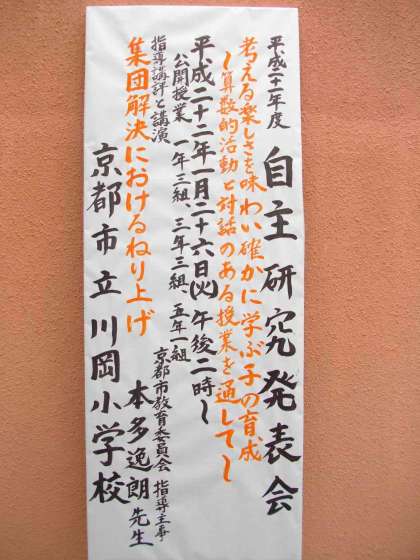 平成二十一年度 自主研究発表会
考える楽しさを味わい確かに学ぶ子の育成
～算数的活動と対話のある授業を通して～
平成二十二年1月二十六日(火)午後二時～
公開授業 一年三組、三年三組、五年一組
指導講評と講演 京都市教育委員会 指導主事
集団解決におけるねり上げ 本多逸朗先生
京都市立川岡小学校